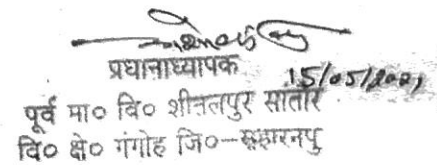 प्रधानाध्यापक
15/05/2021
पूर्व मा० वि० शीतलपुर सातार
वि० क्षे० गंगोह जि०-सहारनपु